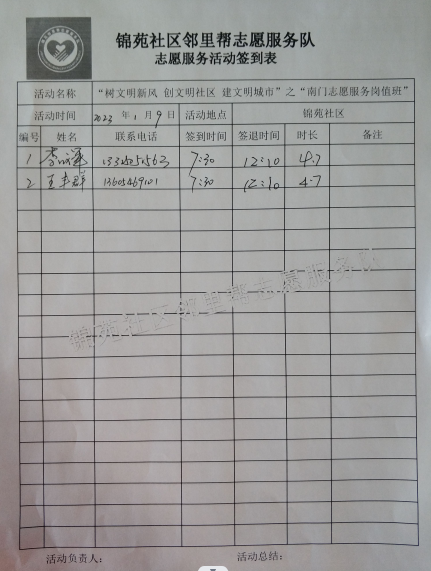 锦苑社区邻里帮志愿服务队
志愿服务活动签到表
活动名称 “树文明新风 创文明社区 建文明城市”之“南门志愿服务岗值班”
活动时间 2023 年 1 月 9 日 活动地点 锦苑社区
编号 姓名 联系电话 签到时间 签退时间 时长 备注
1 李 7:30 12:10 4.7
2 王 群 13605469101 7:30 12:10 4.7
锦苑社区邻里帮志愿服务队
活动负责人： 活动总结：